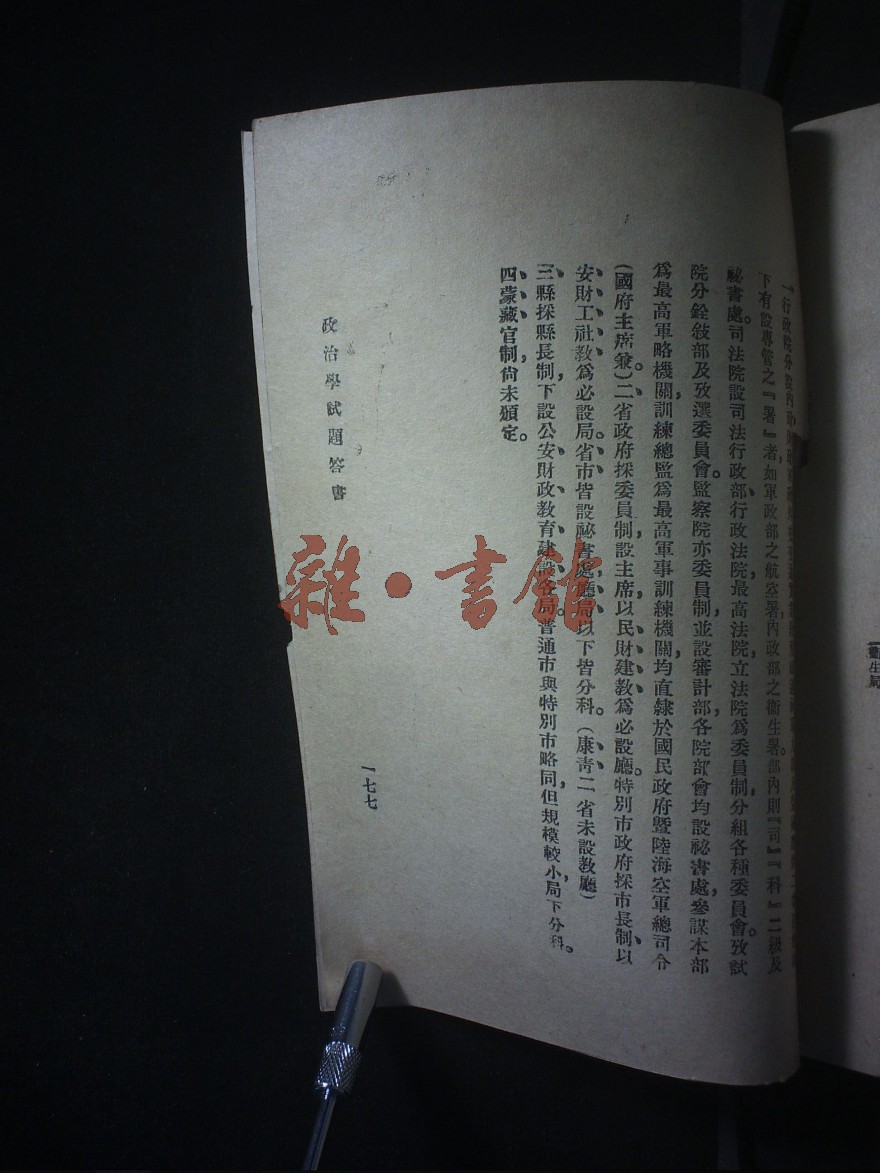 一行政院分設內政
下有設專管之『署』者，如軍政部之航空署內政部之衞生署。部內則『司』『科』二級及
祕書處。司法院設司法行政部、行政法院，最高法院，立法院爲委員制，分組各種委員會。攷試
院分銓敍部及攷選委員會。監察院亦委員制，並設審計部，各院部會均設祕書處，參謀本部
爲最高軍略機關，訓練總監爲最高軍事訓練機關，均直隸於國民政府暨陸海空軍總司令
（國府主席兼）。二省政府採委員制，設主席，以民、財、建、教、爲必設廳。特別市政府採市長制、以
安、財、工、社、教、爲必設局。省、市、皆設祕書處，廳、局、以下皆分科。（康、靑、二省未設教廳）
三、縣採縣長制，下設公安、財政、教育、建設、各局。普通市與特別市略同，但規模較小，局下分科。
四、蒙、藏、官制，尙未頒定。
政治學試題答書
一七七
生局
雜·書館